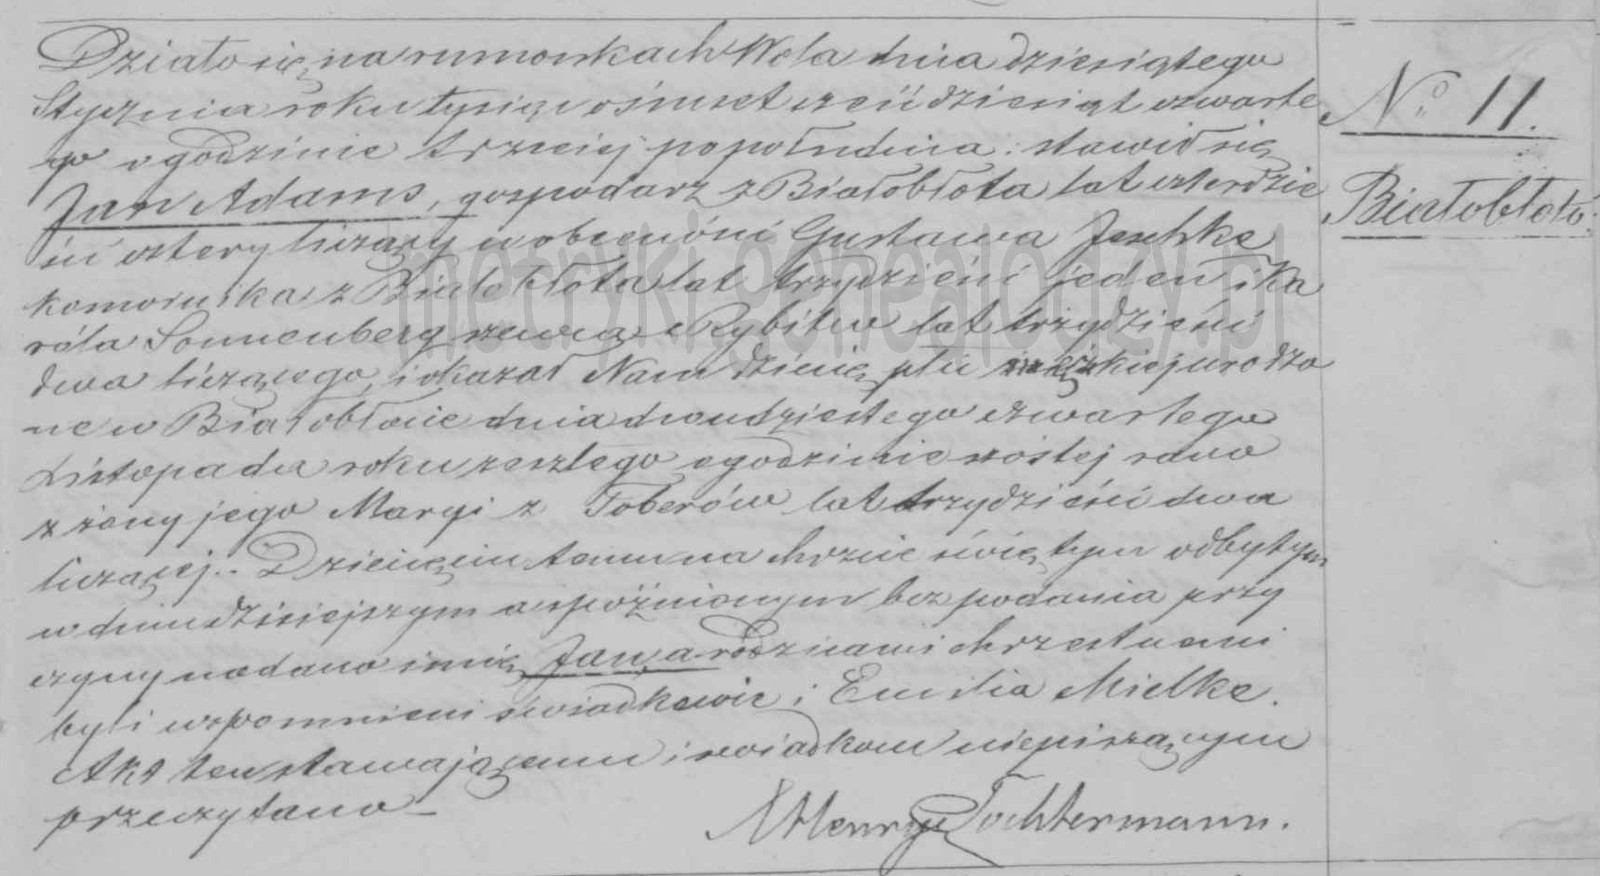 Działo się na rumonkach Wola dnia dziesiątego
Stycznia roku tysiąc ośmset sześćdziesiąt czwarte
go o godzinie trzeciej popołudniu: stawił się
Jan Adams, gospodarz z Białobłota lat czterdzie
ści cztery liczący w obecności Gustawa Jeschke
komornika z Białobłota lat trzydzieści jeden i Ka
róla Sonnenberg szewca z Rybitw lat trzydzieści
dwa liczącego, i okazał Nam dziecię płci męzkiej urodzo
ne w Białobłocie dnia dwudziestego czwartego
Listopada roku zeszłego o godzinie szóstej rano
z żony jego Maryi z Toberów lat trzydzieści dwa
liczącej.. Dziecięciu temu na chrzcie świętym odbytym
w dniu dzisiejszym a spóźnionym bez podania przy
czyny nadano imię Jan, a rodzicami chrzestnemi
byli wspomnieni świadkowie i Emilia Mielke.
Akt ten stawającemu i świadkom niepiszącym
przeczytano –
Henryk Tochtermann.
No 11.
Białobłoto.
metryki.genealodzy.pl